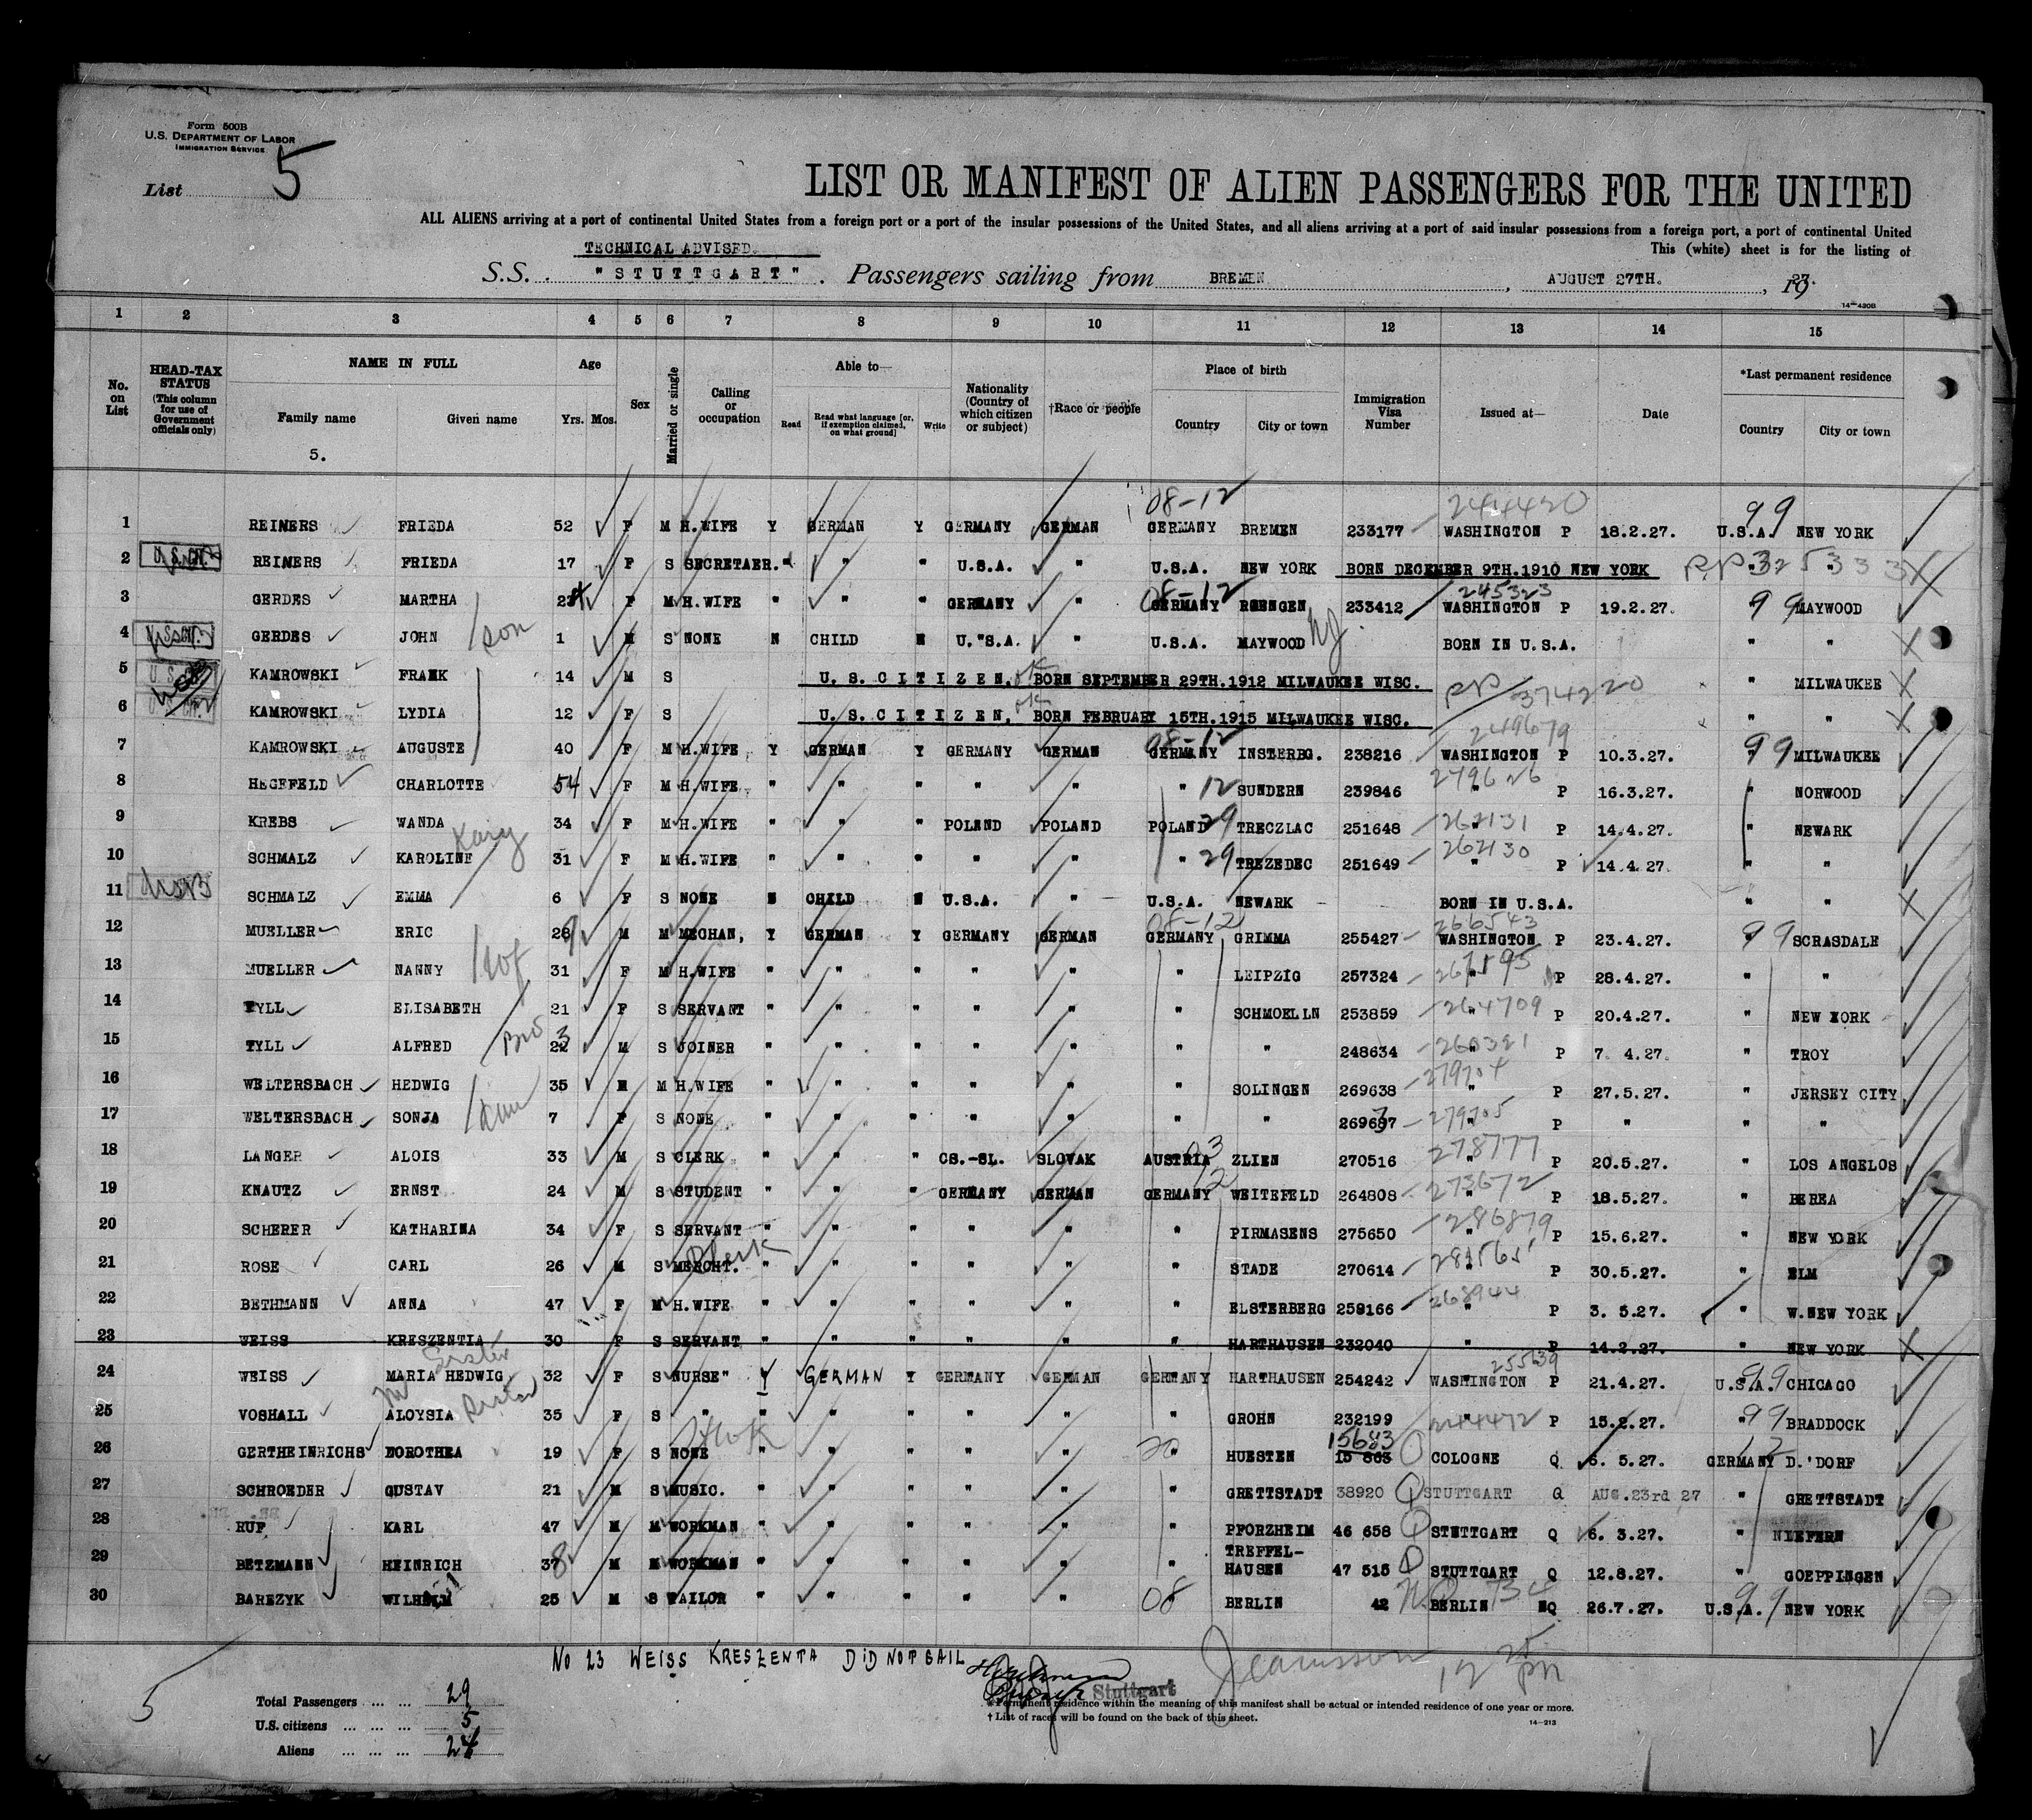 Form 500B
U.S. DEPARTMENT OF LABOR
IMMIGRATION SERVICE
List 5
LIST OR MANIFEST OF ALIEN PASSENGERS FOR THE UNITED
ALL ALIENS arriving at a port of continental United States from a foreign port or a port of the insular possessions of the United States, and all aliens arriving at a port of said insular possessions from a foreign port, a port of continental United
This (white) sheet is for the listing of
TECHNICAL ADVISED.
S.S. "STUTTGART". Passengers sailing from BREMEN, AUGUST 27TH., 1927.
14-430B
1 2 3 4 5 6 7 8 9 10 11 12 13 14 15
No. on List
HEAD-TAX STATUS (This column for use of Government officials only)
NAME IN FULL
Family name Given name
5.
Age Yrs. Mos.
Sex
Married or single
Calling or occupation
Able to—
Read Read what language [or, if exemption claimed, on what ground] Write
Nationality (Country of which citizen or subject)
†Race or people
Place of birth
Country City or town
Immigration Visa Number
Issued at—
Date
*Last permanent residence
Country City or town
08-12 244420 99
1 REINERS FRIEDA 52 F M H.WIFE Y GERMAN Y GERMANY GERMAN GERMANY BREMEN 233177 WASHINGTON P 18.2.27. U.S.A. NEW YORK
2 REINERS FRIEDA 17 F S SECRETAER. " " " U.S.A. " U.S.A. NEW YORK BORN DECEMBER 9TH.1910 NEW YORK PP 325333 X
3 GERDES MARTHA 24 F M H.WIFE " " " GERMANY " 08-12 GERMANY ROENGEN 233412 245323 WASHINGTON P 19.2.27. 99 MAYWOOD
4 GERDES JOHN son 1 M S NONE N CHILD N U.S.A. " U.S.A. MAYWOOD NJ. BORN IN U.S.A. " " X
5 KAMROWSKI FRANK 14 M S U.S.CITIZEN, ok BORN SEPTEMBER 29TH.1912 MILWAUKEE WISC. " MILWAUKEE X
PP 374220
6 KAMROWSKI LYDIA 12 F S U.S.CITIZEN, ok BORN FEBRUARY 15TH.1915 MILWAUKEE WISC. " " X
7 KAMROWSKI AUGUSTE 40 F M H.WIFE Y GERMAN Y GERMANY GERMAN 08-12 GERMANY INSTERBG. 238216 249679 WASHINGTON P 10.3.27. 99 MILWAUKEE
8 HEGEFELD CHARLOTTE 54 F M H.WIFE " " " " " " 12 SUNDERN 239846 249626 " P 16.3.27. " NORWOOD
9 KREBS WANDA 34 F M H.WIFE " " " POLAND POLAND POLAND 29 TRECZLAC 251648 262131 " P 14.4.27. " NEWARK
10 SCHMALZ KAROLINE 31 F M H.WIFE " " " " " " 29 TREZEDEC 251649 262130 " P 14.4.27. " "
11 SCHMALZ EMMA 6 F S NONE N CHILD N U.S.A. " U.S.A. NEWARK BORN IN U.S.A. " " X
12 MUELLER ERIC 29 M M MECHAN, Y GERMAN Y GERMANY GERMAN 08-12 GERMANY GRIMMA 255427 266543 WASHINGTON P 23.4.27. 99 SCRASDALE
13 MUELLER NANNY 31 F M H.WIFE " " " " " " LEIPZIG 257324 " P 28.4.27. " "
14 TYLL ELISABETH 21 F S SERVANT " " " " " " SCHMOELLN 253859 264709 P 20.4.27. " NEW YORK
15 TYLL ALFRED Bro 23 M S JOINER " " " " " " " 248634 " P 7 4.27. " TROY
16 WELTERSBACH HEDWIG 35 M M H.WIFE " " " " " " SOLINGEN 269638 279704 P 27.5.27. " JERSEY CITY
17 WELTERSBACH SONJA 7 F S NONE " " " " " " " 269637 279705 P " " "
18 LANGER ALOIS 33 M S CLERK " " " CS.-SL. SLOVAK AUSTRIA 03 ZLIEN 270516 278777 P 20.5.27. " LOS ANGELOS
19 KNAUTZ ERNST 24 M S STUDENT " " " GERMANY GERMAN 12 GERMANY WEITEFELD 264808 273672 P 18.5.27. " BEREA
20 SCHERER KATHARINA 34 F S SERVANT " " " " " " PIRMASENS 275650 286879 P 15.6.27. " NEW YORK
21 ROSE CARL 26 M S MERCHT. Clerk " " " " " " STADE 270614 " P 30.5.27. " ELM
22 BETHMANN ANNA 47 F M H.WIFE " " " " " " ELSTERBERG 259166 268944 P 3. 5.27. " W.NEW YORK
23 WEISS KRESZENTIA 30 F S SERVANT " " " " " " HARTHAUSEN 232040 " P 14.2.27. " NEW YORK X
24 WEISS MARIA HEDWIG Sister 32 F S NURSE" Y GERMAN Y GERMANY GERMAN GERMANY HARTHAUSEN 254242 255639 WASHINGTON P 21.4.27. U.S.A. 99 CHICAGO
25 VOSHALL ALOYSIA 35 F S " " " " " " " GROHN 232199 244472 P 15.2.27. " 99 BRADDOCK
26 GERTHEINRICHS DOROTHEA 19 F S NONE " " " " " 20 " HUESTEN 15683 15 863 COLOGNE Q 6. 5.27. GERMANY 12 D.'DORF
27 SCHROEDER GUSTAV 21 M S MUSIC. " " " " " " GRETTSTADT 38920 STUTTGART Q AUG.23rd 27 " GRETTSTADT
28 RUF KARL 47 M M WORKMAN " " " " " " PFORZHEIM 46 658 STUTTGART Q 6. 3.27. " NIEFERN
29 BETZMANN HEINRICH 37 8 M M WORKMAN " " " " " " TREFFEL-
HAUSEN 47 515 STUTTGART Q 12.8.27. " GOEPPINGEN
30 BAREZYK WILHELM 25 M S TAILOR " " " " " 08 BERLIN 42 BERLIN NQ 26.7.27. U.S.A. 99 NEW YORK
No 23 WEISS KRESZENTA DID NOT SAIL
Stuttgart
12 25 pm
5
Total Passengers 29
U.S. citizens 5
Aliens 24
*Permanent residence within the meaning of this manifest shall be actual or intended residence of one year or more.
†List of races will be found on the back of this sheet.
14-213